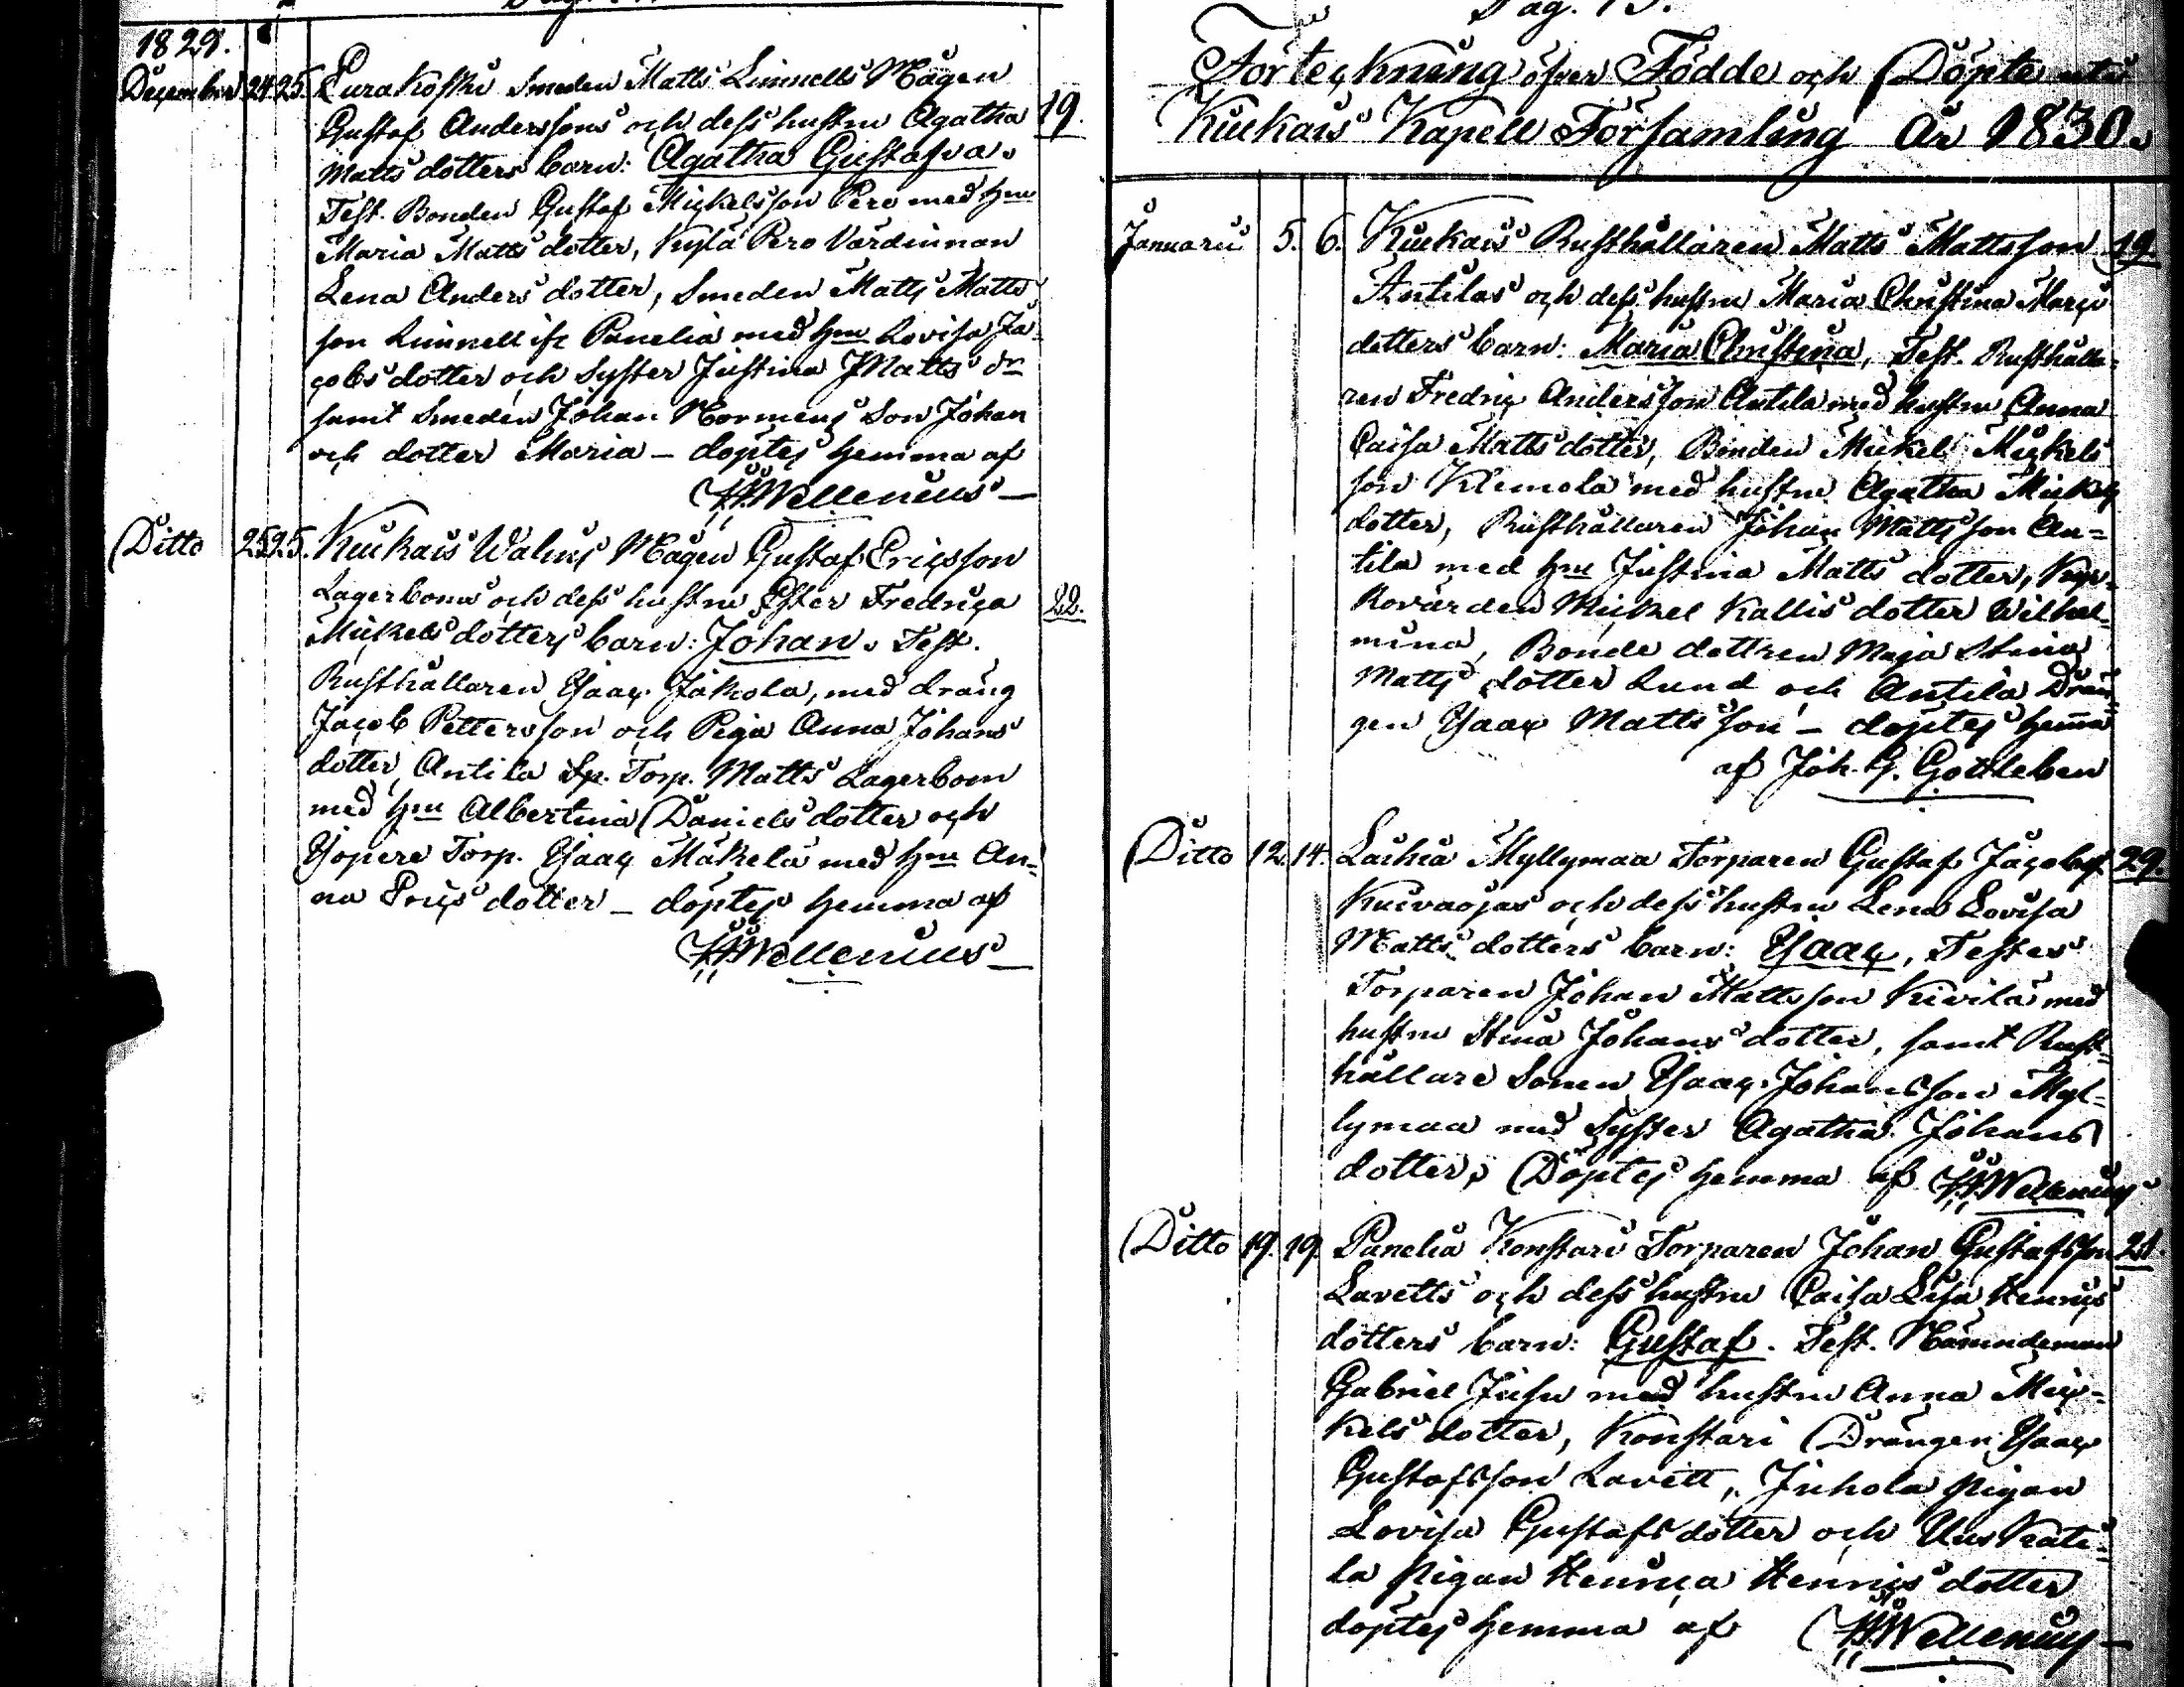 1829.
December 24. 25. Eurakoski Smeden Matts Linnells Mågen
Gustaf Anderssons och dess hustru Agatha 19.
Matts dotters barn: Agatha Gustafva.
Test. Bonden Gustaf Mickelsson Pero med Hru
Maria Matts dotter, Pero Värdinnan
Lena Anders dotter, Smeden Matts Matts
son Linnell ifr Panelia med Hru Lovisa Ja=
cobs dotter och Syster Justina Matts dr
samt Smeden Johan Normens Son Johan
och dotter Maria — döptes hemma af
Wellenius —
Ditto 25. 25. Kiukais Mågen Gustaf Ericsson
Lagerboms och dess hustru Ester Fredrica 22.
Mickels dotters barn: Johan. Test.
Rusthållaren Isaac Jakola, med dräng
Jacob Pettersson och Piga Anna Johans
dotter, Antila Sp. Torp. Matts Lagerbom
med Hru Albertina Daniels dotter och
Torp. Isaac Mäkelä med Hru An=
na Erics dotter — döptes hemma af
Wellenius —
Pag. 13.
Förteckning öfver Födde och Döpte uti
Kiukais Kapell Församling År 1830.
Januarii 5. 6. Kiukais Rusthållaren Matts Mattsson 19.
Antilas och dess hustru Maria Christina Marci
dotters barn: Maria Christina, Test. Rusthålla=
ren Fredric Andersson Antila med hustru Anna
Caisa Matts dotter, Bonden Mickel Mickels
son Klemola med hustru Agatha Mickels
dotter, Rusthållaren Johan Mattsson An=
tila med Hru Justina Matts dotter, Kyr=
kovärden Mickel Kallis dotter Wilhel=
mina, Bonde dottren Maja Stina
Matts dotter Lund och Antila Drän=
gen Isaac Matts son — döptes hemma
af Joh. G. Gottleben
Ditto 12. 14. Laihia Myllymaa Torparen Gustaf Jacobss. 29.
Kuivaojas och dess hustru Lena Lovisa
Matts dotters barn: Isaac, Testes
Torparen Johan Mattsson Kivilä med
hustru Stina Johans dotter, samt Rust=
hållare Sonen Isaac Johansson Myl=
lymaa med Syster Agatha Johans
dotter. Döptes hemma af Wellenius
Ditto 19. 19. Panelia Konstari Torparen Johan Gustafsson 21.
Lavetts och dess hustru Caisa Lisa Henrics
dotters barn: Gustaf. Test. Nämndeman
Gabriel Jusu med hustru Anna Mic=
kels dotter, Konstari Drängen Isaac
Gustafsson Lavett, Juhola Pigan
Lovisa Gustafs dotter och Uus Kati=
la Pigan Henrica Henrics dotter
döptes hemma af Wellenius —